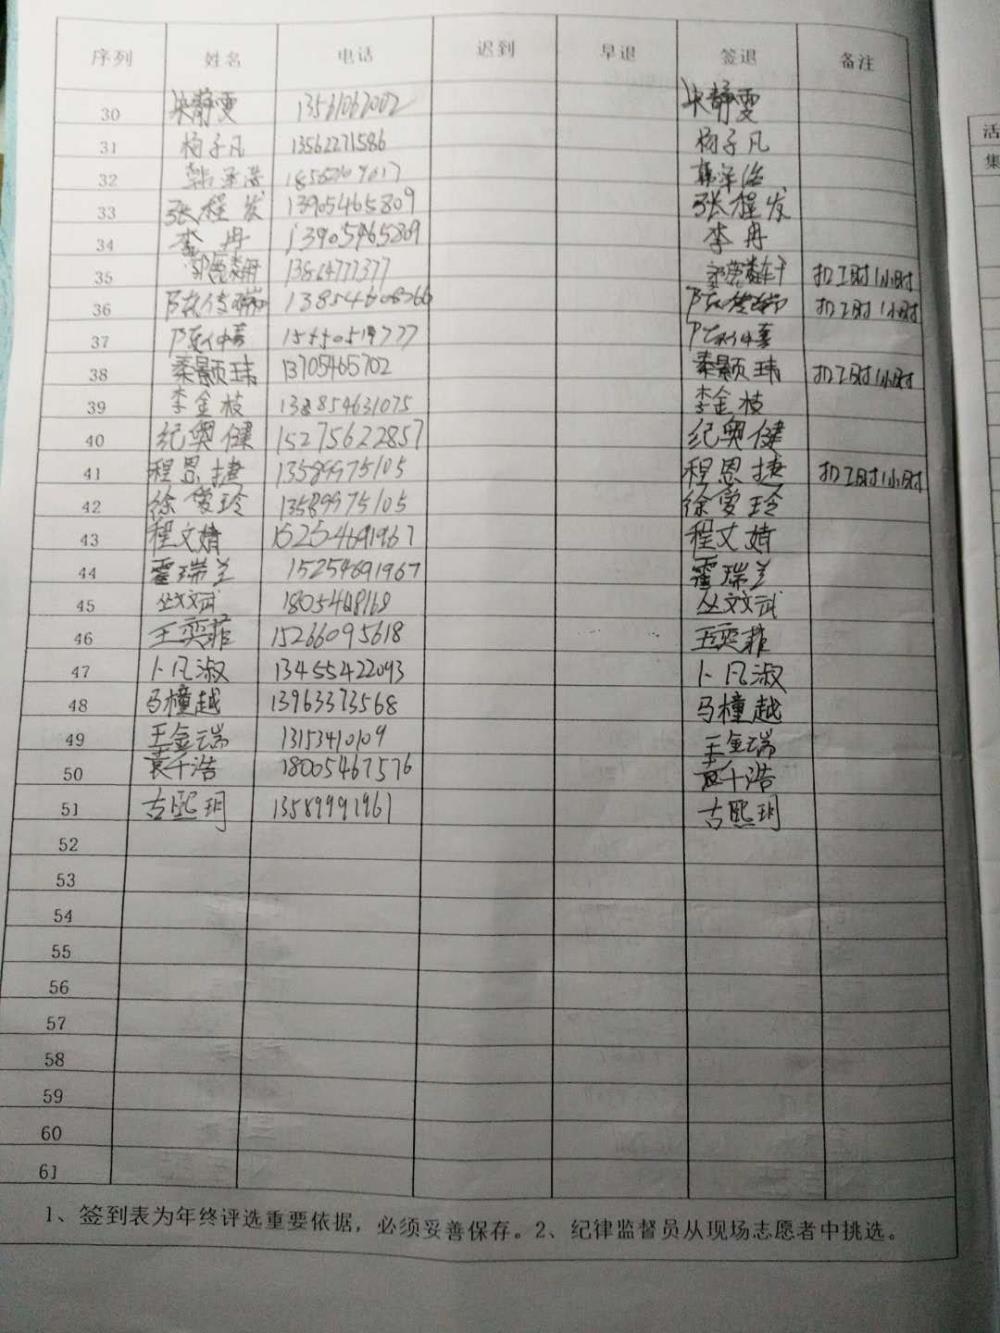 序列 姓名 电话 迟到 早退 签退 备注
30 静雯 13561062002 静雯
31 杨子凡 13562271586 杨子凡
32 韩泽浩 韩泽浩
33 张程发 13905465809 张程发
34 李冉 13905465809 李冉
35 扣工时1小时
36 扣工时1小时
37
38 秦颢玮 13705465702 秦颢玮 扣工时1小时
39 李金枝 李金枝
40 纪奥健 15275622857 纪奥健
41 程恩捷 13589975105 程恩捷 扣工时1小时
42 徐爱玲 13589975105 徐爱玲
43 程文婧 15254691967 程文婧
44 霍瑞兰 15254691967 霍瑞兰
45 丛文斌 丛文斌
46 王奕菲 15266095618 王奕菲
47 卜凡淑 13455422093 卜凡淑
48 马橦越 13963373568 马橦越
49 王金瑞 13153410109 王金瑞
50 袁千浩 18005467576 袁千浩
51 古熙玥 13589991961 古熙玥
52
53
54
55
56
57
58
59
60
61
1、签到表为年终评选重要依据，必须妥善保存。2、纪律监督员从现场志愿者中挑选。
活
集